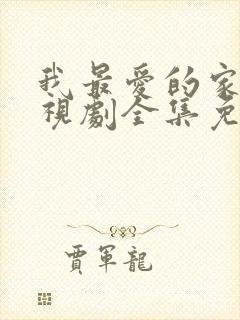 我最愛的家
視劇全集免
賈軍龍